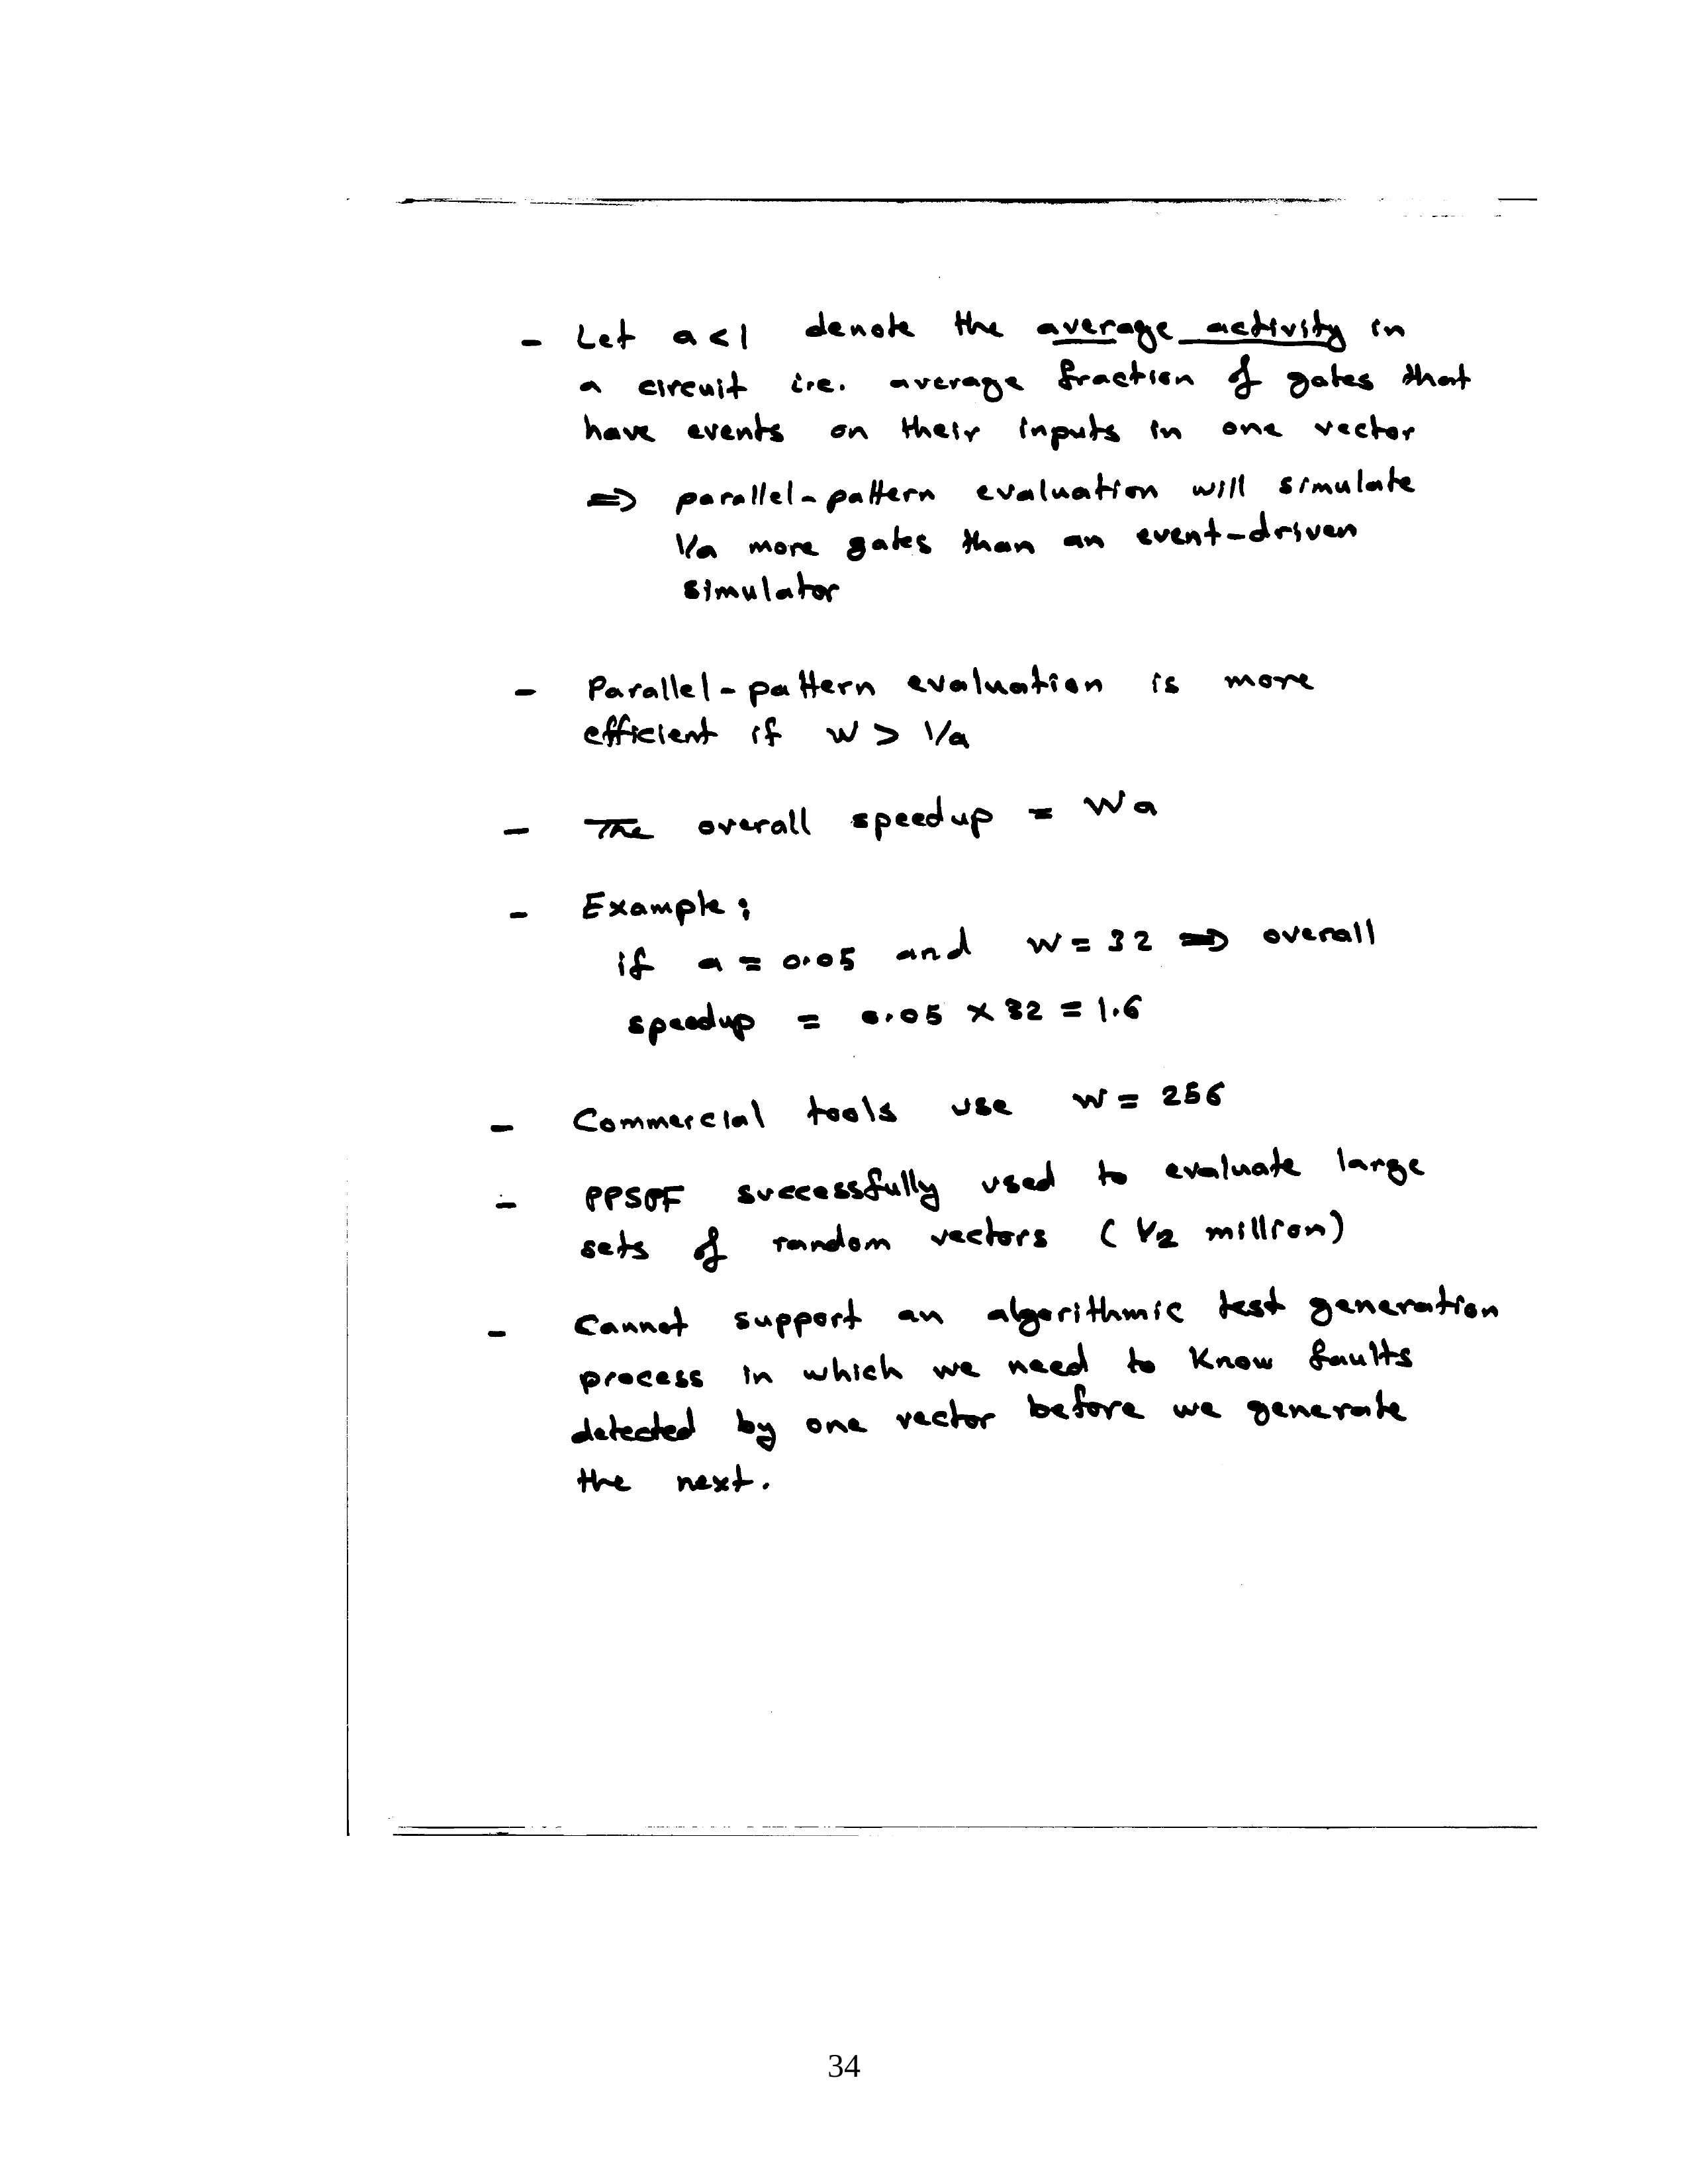 - Let a < 1 denote the average activity in
a circuit i.e. average fraction of gates that
have events on their inputs in one vector
⇒ parallel-pattern evaluation will simulate
1/a more gates than an event-driven
simulator
- Parallel-pattern evaluation is more
efficient if W > 1/a
- The overall speedup = Wa
- Example:
if a = 0.05 and W = 32 ⇒ overall
speedup = 0.05 × 32 = 1.6
- Commercial tools use W = 256
- PPSPF successfully used to evaluate large
sets of random vectors (1/2 million)
- Cannot support an algorithmic test generation
process in which we need to know faults
detected by one vector before we generate
the next.
34